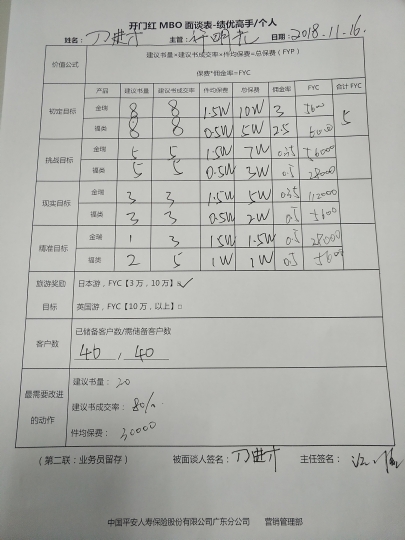 开门红 MBO 面谈表-绩优高手/个人
姓名： 主管： 日期：2018.11.16.
价值公式 建议书量×建议书成交率×件均保费=总保费（FYP）
保费*佣金率=FYC
产品 建议书量 建议书成交率 件均保费 总保费 佣金率 FYC 合计 FYC
初定目标 金瑞 8 8 1.5W 10W 3 5
福类 8 8 0.5W 5W 2.5
挑战目标 金瑞 5 5 1.5W 7W 56000
福类 5 5 0.5W 3W 0.5 28000
现实目标 金瑞 3 3 1.5W 5W 0.35
福类 3 3 0.5W 2W 0.5
精准目标 金瑞 1 3 1.5W 1.5W 0.5 28000
福类 2 5 1W 1W 0.5
旅游奖励 日本游，FYC【3 万，10 万】✓
目标 英国游，FYC【10 万，以上】□
客户数 已储备客户数/需储备客户数
40 , 40
最需要改进 建议书量：30
的动作 建议书成交率：80%
件均保费：30000
（第二联：业务员留存） 被面谈人签名： 主任签名：
中国平安人寿保险股份有限公司广东分公司 营销管理部